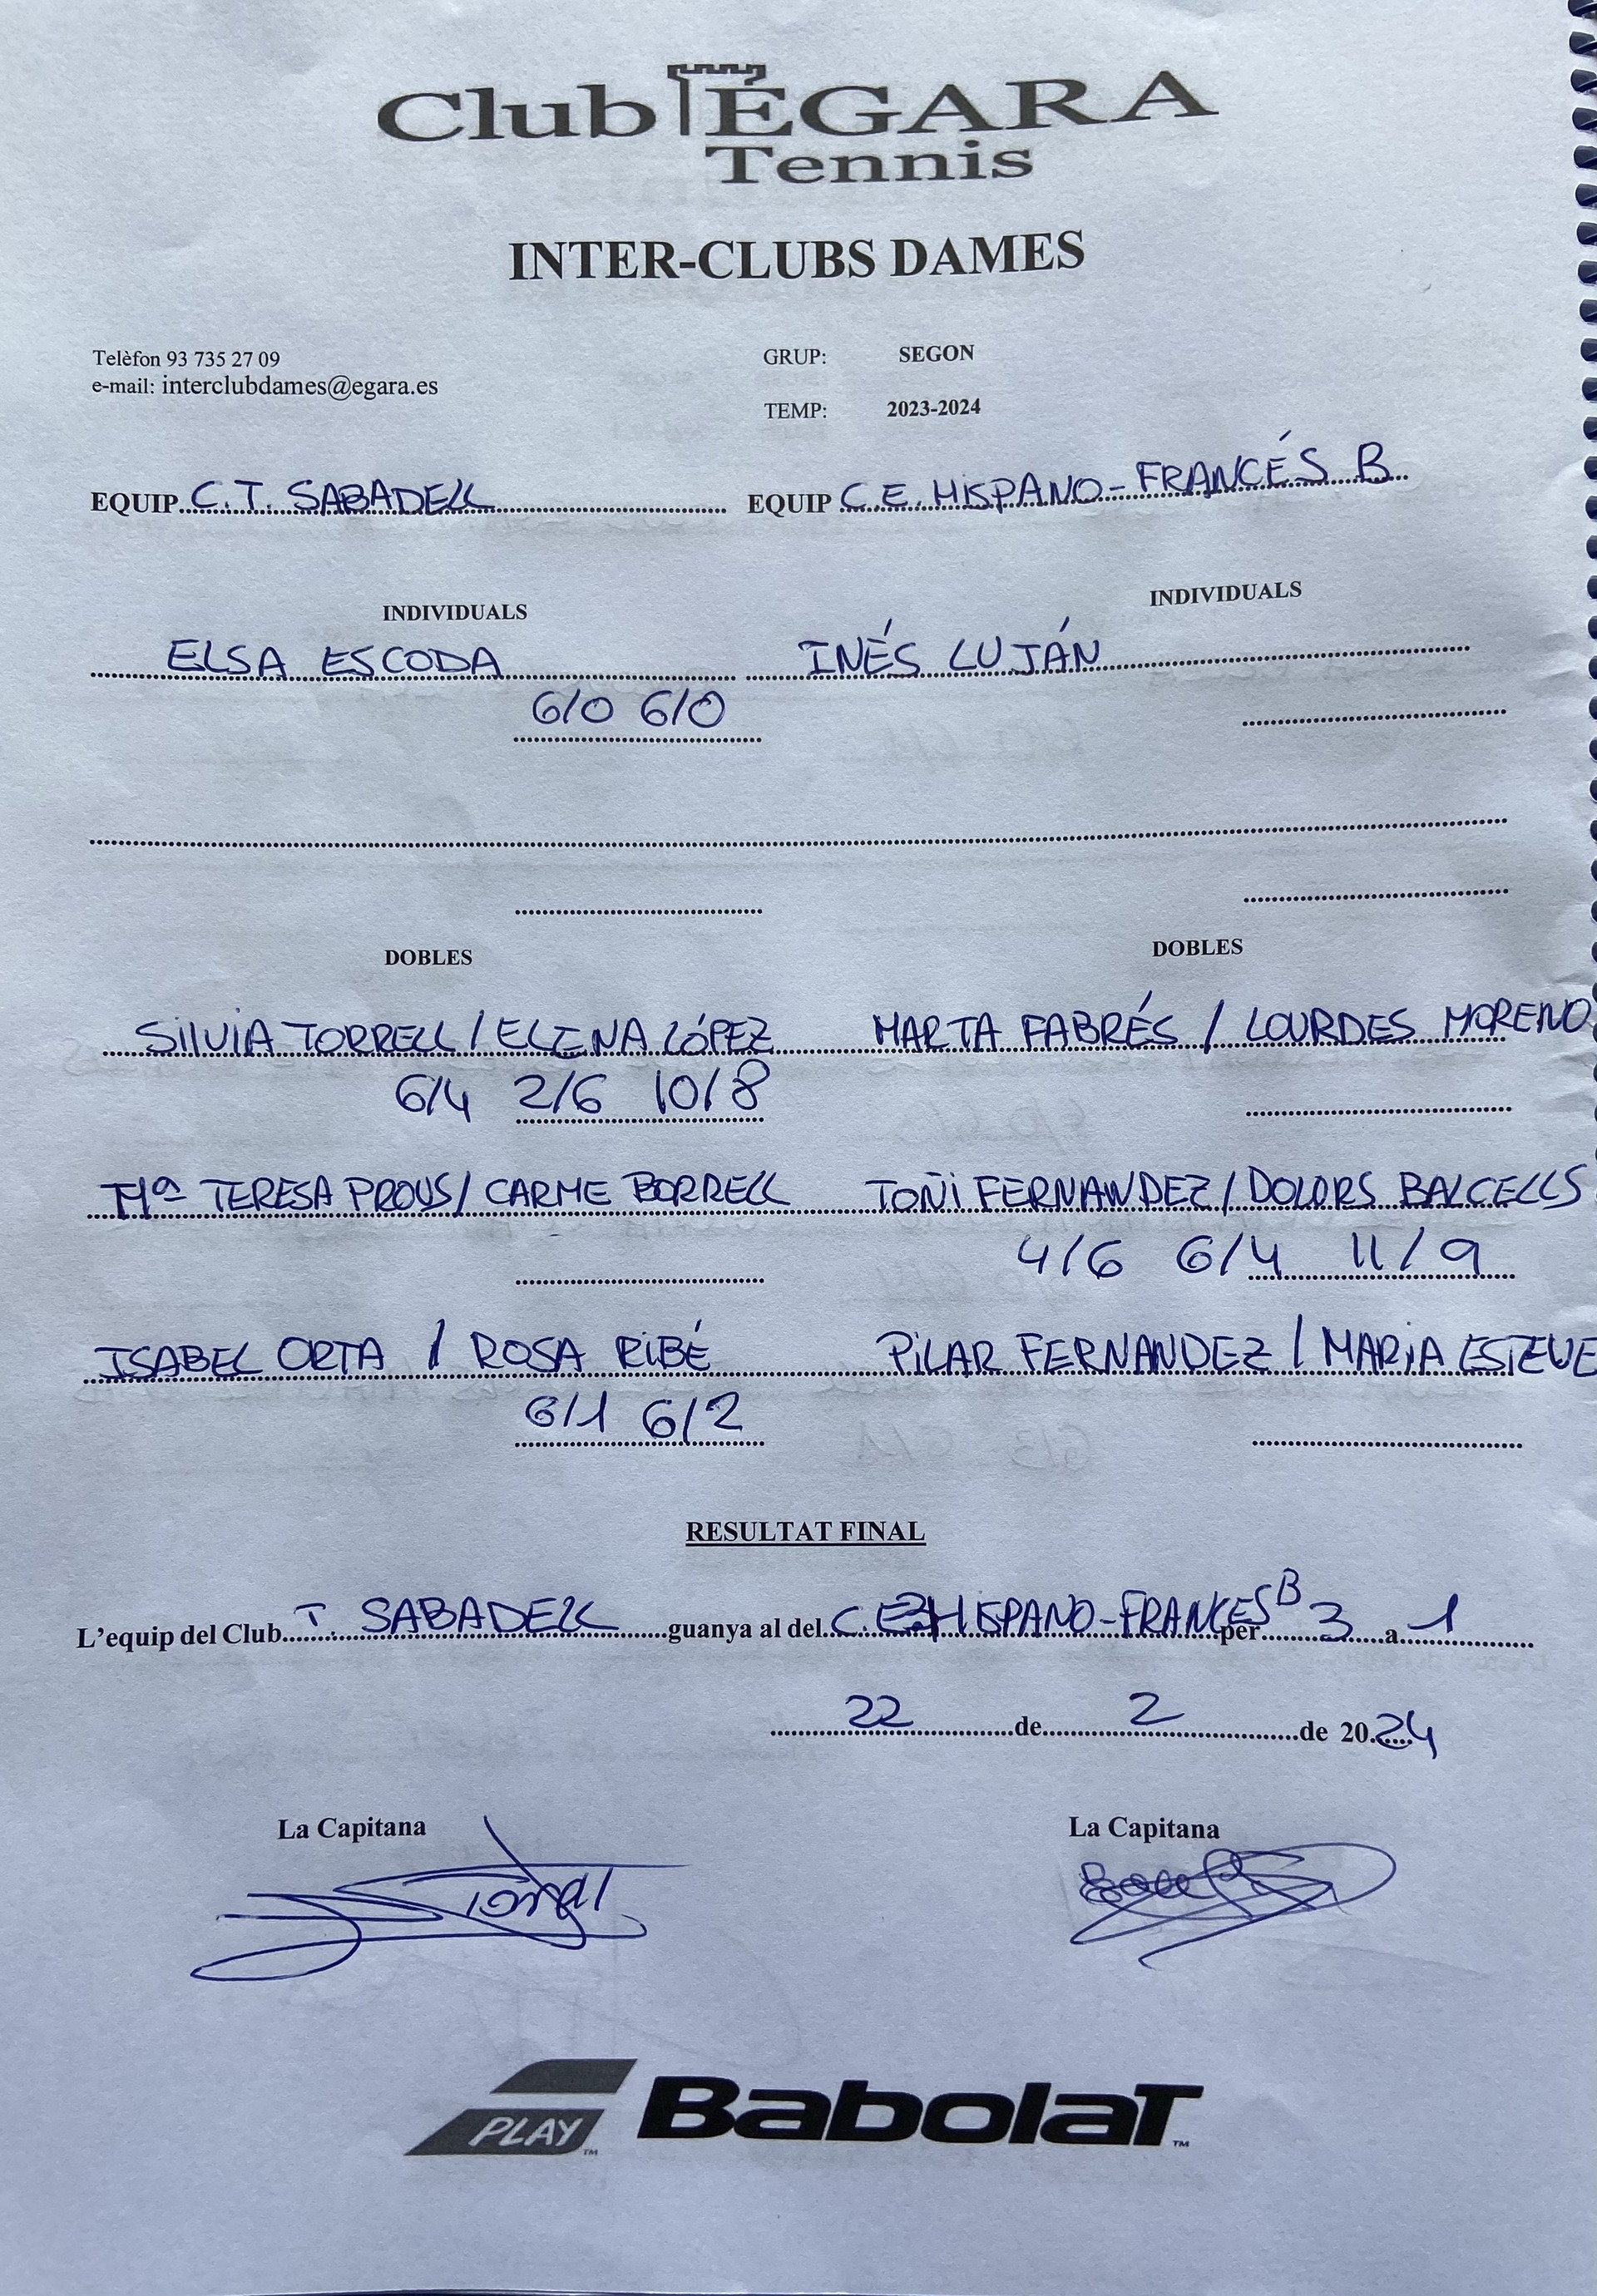 Club EGARA
Tennis
INTER-CLUBS DAMES
Telèfon 93 735 27 09
e-mail: interclubdames@egara.es
GRUP: SEGON
TEMP: 2023-2024
EQUIP C.T. SABADELL EQUIP C.E. HISPANO-FRANCÉS B
INDIVIDUALS INDIVIDUALS
ELSA ESCODA INÉS LUJÁN
6/0 6/0
DOBLES DOBLES
SILVIA TORRELL / ELENA LÓPEZ MARTA FABRÉS / LOURDES MORENO
6/4 2/6 10/8
Mª TERESA PROUS / CARME BORRELL TOÑI FERNANDEZ / DOLORS BALCELLS
4/6 6/4 11/9
ISABEL ORTA / ROSA RIBÉ PILAR FERNANDEZ / MARIA ESTEVE
6/1 6/2
RESULTAT FINAL
L'equip del Club T. SABADELL guanya al del C.E. HISPANO-FRANCES B per 3 a 1
22 de 2 de 2024
La Capitana La Capitana
PLAY™ BabolaT™